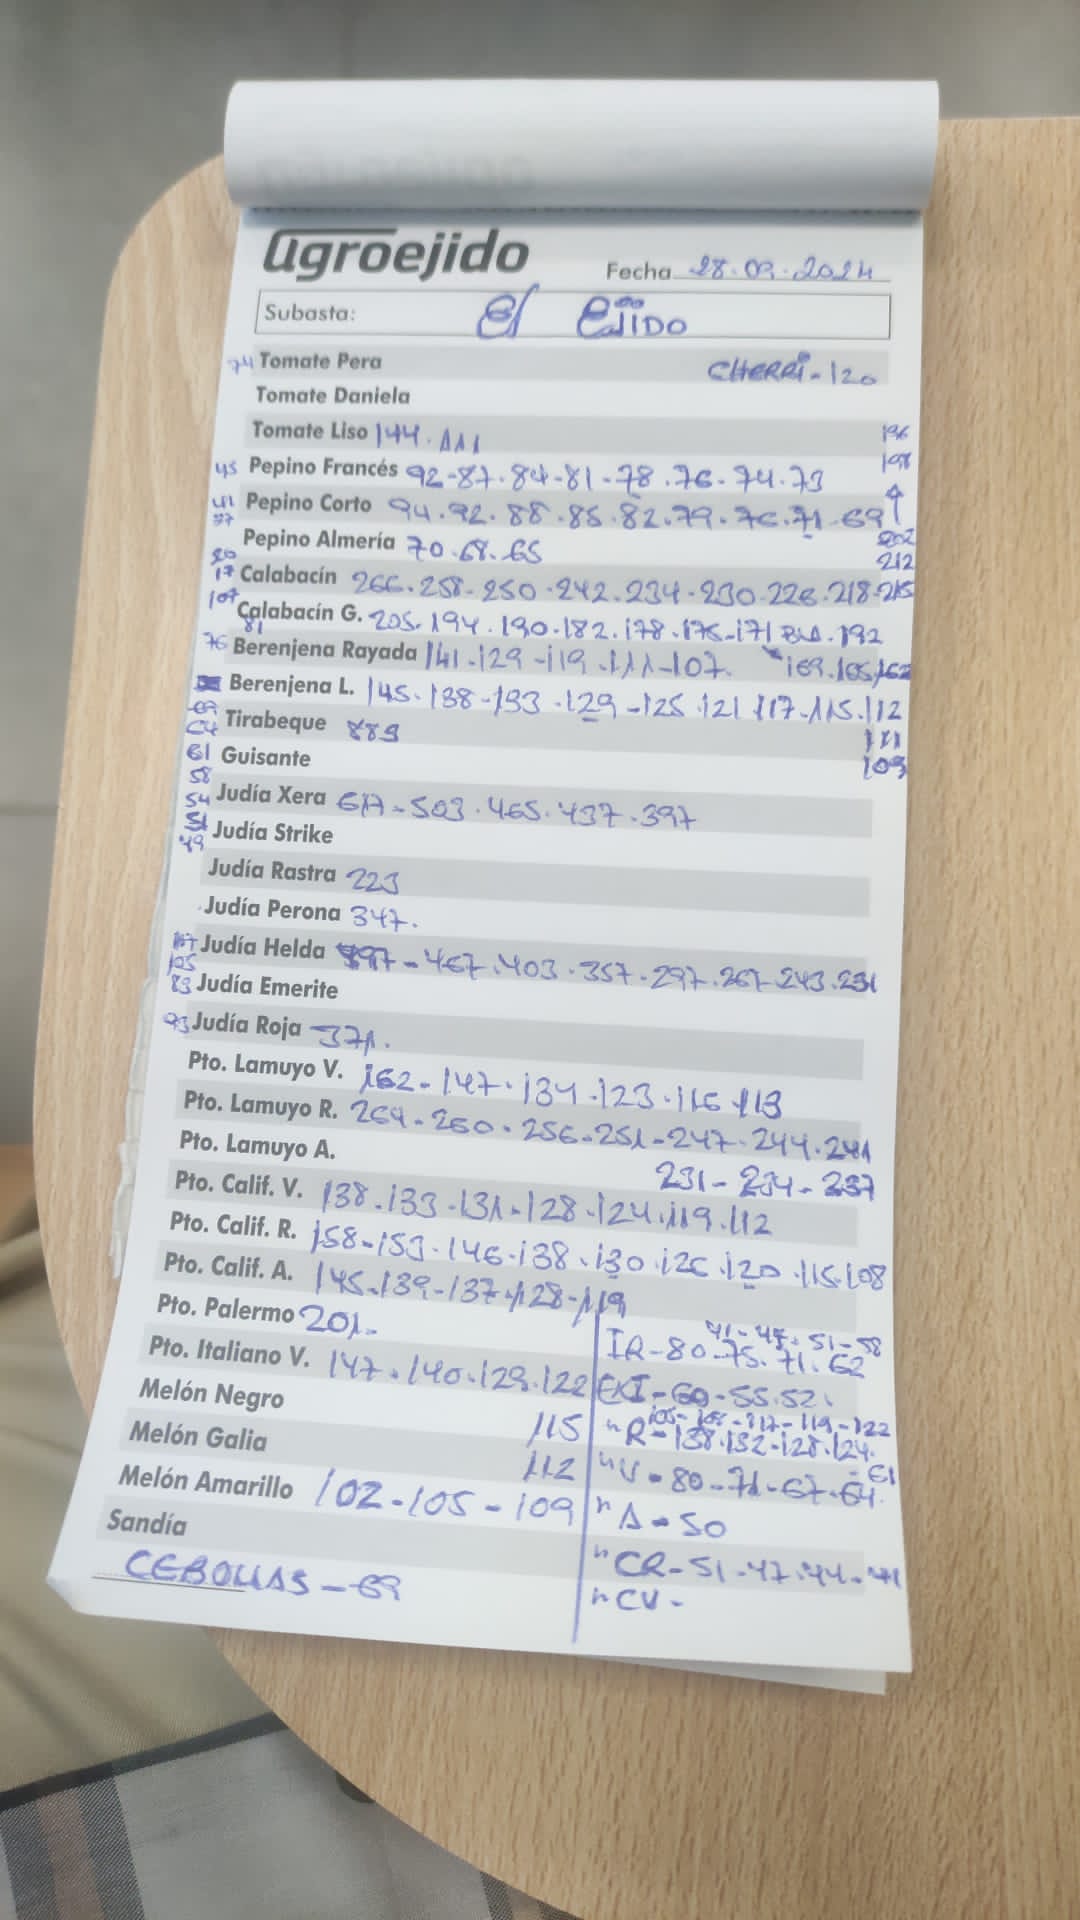 agroejido
Fecha 28.09.2024
Subasta: El EJIDO
74 Tomate Pera CHERRI - 120
Tomate Daniela
Tomate Liso 144. 111 196
45 Pepino Francés 92-87.84-81-78.76-74.73 198
41 Pepino Corto 94.92.88.85.82.79.76.71-69
37 Pepino Almería 70.68.65 202
212
20
17 Calabacín 266-258-250.242.234-230.226.218-215
107 Calabacín G. 205.194.190.182.178.175-171 192
81
76 Berenjena Rayada 141.129-119.111-107. 169.165.162
Berenjena L. 145.138-133.129-125.121 117.115.112
69
64 Tirabeque 889 111
61 Guisante 109
58
54 Judía Xera 617-503.465.437.397
51 Judía Strike
49
Judía Rastra 223
Judía Perona 347.
Judía Helda 497-467.403.357-297.267-243.231
105
83 Judía Emerite
93 Judía Roja 371.
Pto. Lamuyo V. 162-147.134.123.116.113
Pto. Lamuyo R. 264-260.256-251-247.244.241
Pto. Lamuyo A. 231-234-237
Pto. Calif. V. 138.133-131-128-124.119.112
Pto. Calif. R. 158-153.146.138.130.126.120.115.108
Pto. Calif. A. 145.139-137.128-119
Pto. Palermo 201.
41-47-51-58
IR-80-75.71.62
Pto. Italiano V. 147.140.129.122
EXI-60-55.52.
Melón Negro 115
105-108-117-119-122
"R-138.132-128.124.
Melón Galia 112
-61
"V-80-71-67-64.
Melón Amarillo 102-105-109
"A-50
Sandía
"CR-51-47.44-41
CEBOLLAS-69
"CV-